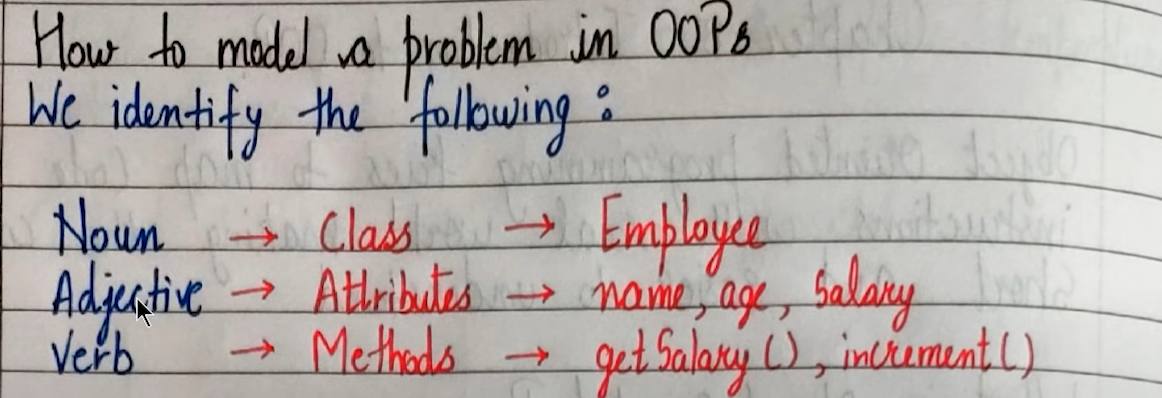 How to model a problem in OOPs
We identify the following :
Noun → Class → Employee
Adjective → Attributes → name, age, Salary
Verb → Methods → getSalary (), increment()